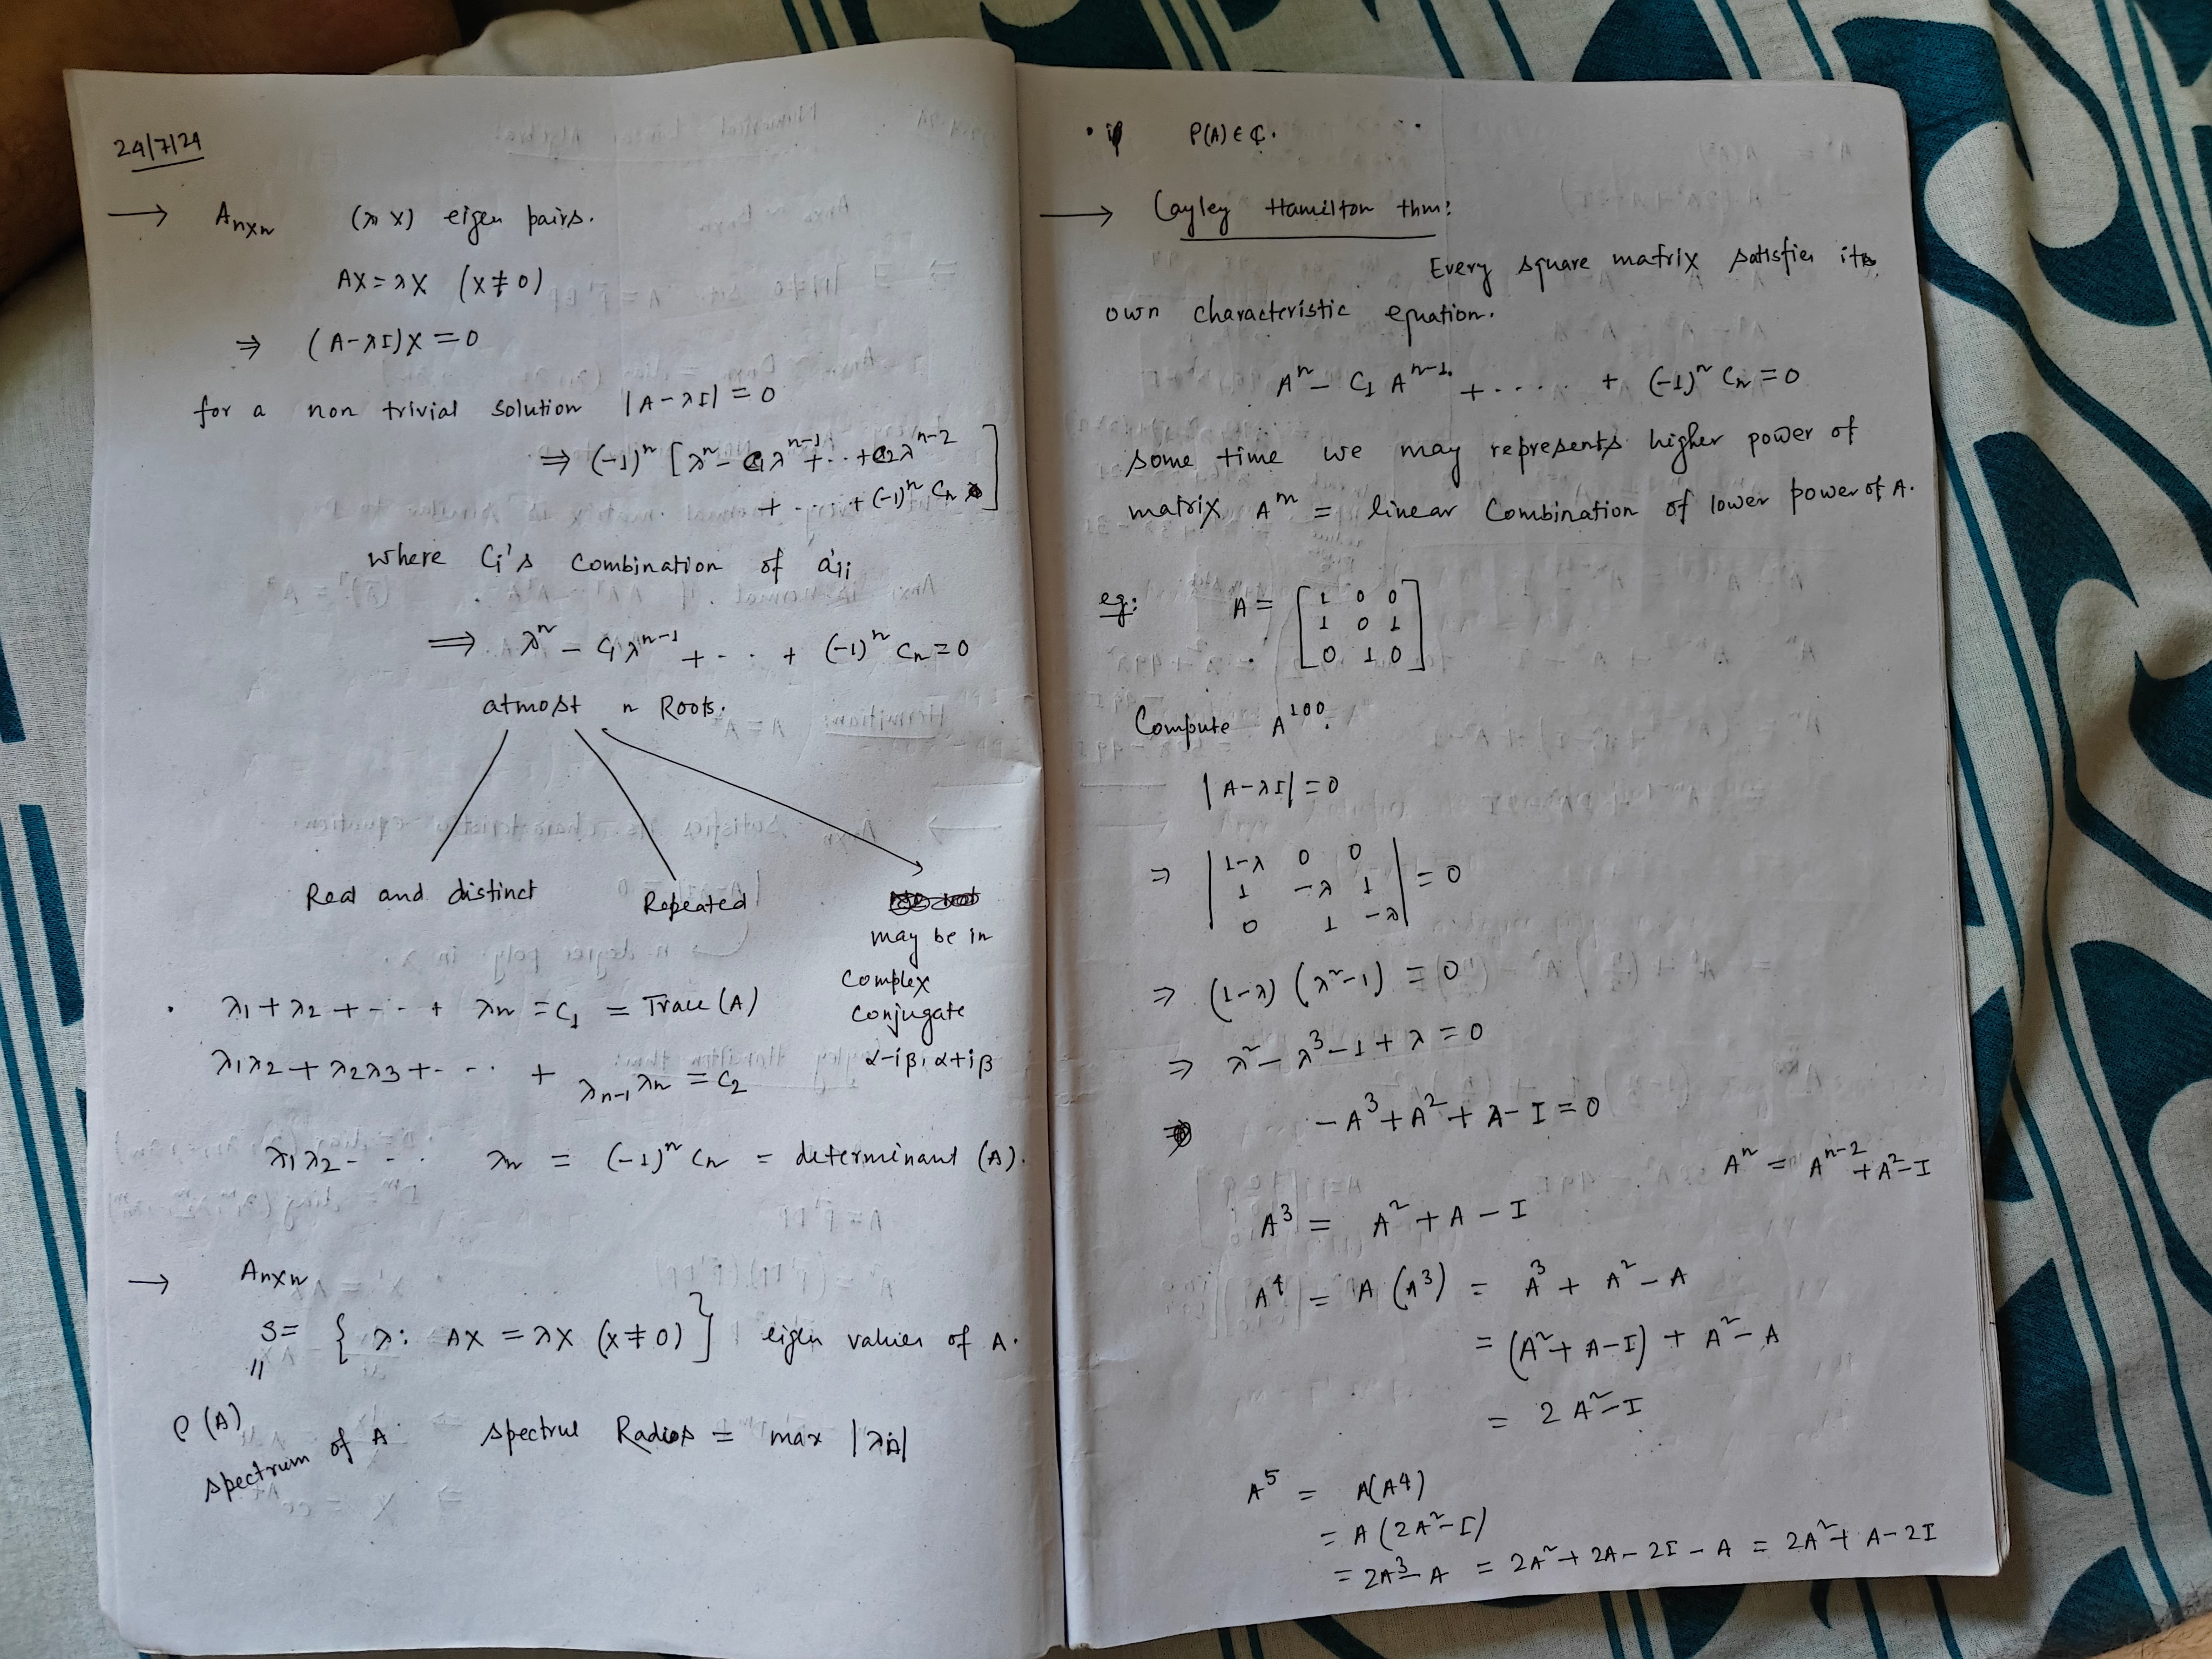 24/7/24
→ Anxn (λ, X) eigen pairs.
AX = λX (X ≠ 0)
⇒ (A-λI)X = 0
for a non trivial solution |A-λI| = 0
⇒ (-1)ⁿ [λⁿ - C₁λⁿ⁻¹ + .. + C₂λⁿ⁻²
+ ... + (-1)ⁿ Cₙ]
where Ci's combination of aij
⇒ λⁿ - C₁λⁿ⁻¹ + - . . + (-1)ⁿ Cₙ = 0
atmost n Roots.
Real and distinct
Repeated
may be in
complex
conjugate
α-iβ, α+iβ
. λ₁ + λ₂ + - . . + λₙ = C₁ = Trace (A)
λ₁λ₂ + λ₂λ₃ + - . . + λₙ₋₁ λₙ = C₂
λ₁λ₂ - . . . λₙ = (-1)ⁿ Cₙ = determinant (A).
→ Anxn
S = { λ : AX = λX (X ≠ 0) } eigen values of A.
〃
ρ(A)
spectrum of A. spectrul Radios = max |λi|
• if ρ(A) ∈ ₵.
→ Cayley Hamilton thm:
Every square matrix satisfies its
own characteristic equation.
Aⁿ - C₁ Aⁿ⁻¹ + . . . . + (-1)ⁿ Cₙ = 0
some time we may represents higher power of
matrix Aᵐ = linear Combination of lower power of A.
eg: A = [1 0 0
1 0 1
0 1 0]
Compute A¹⁰⁰.
|A-λI| = 0
⇒ |1-λ 0 0
1 -λ 1
0 1 -λ| = 0
⇒ (1-λ) (λ²-1) = 0
⇒ λ² - λ³ - 1 + λ = 0
-A³ + A² + A - I = 0
Aⁿ = Aⁿ⁻² + A² - I
A³ = A² + A - I
A⁴ = A (A³) = A³ + A² - A
= (A² + A - I) + A² - A
= 2A² - I
A⁵ = A(A⁴)
= A (2A² - I)
= 2A³ - A = 2A² + 2A - 2I - A = 2A² + A - 2I